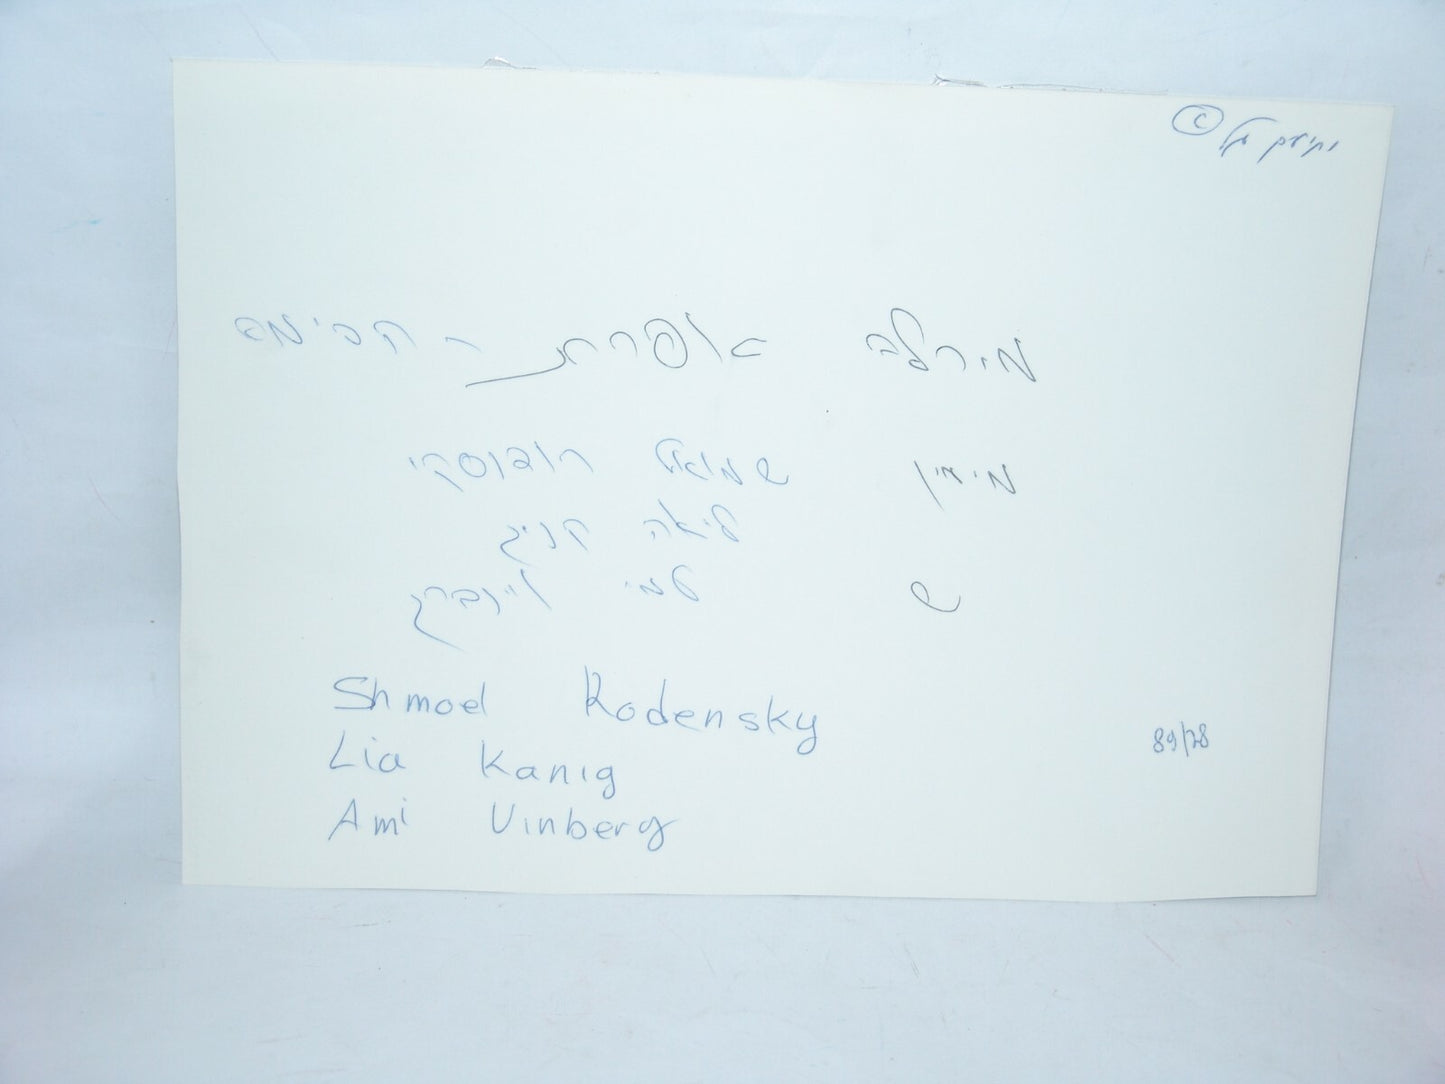 ©
מירלה אפרת - הבימה
מימין שמואל רודנסקי
ליאה קניג
ש עמי ויינברג
Shmoel Rodensky
Lia Kanig
Ami Vinberg
89/28